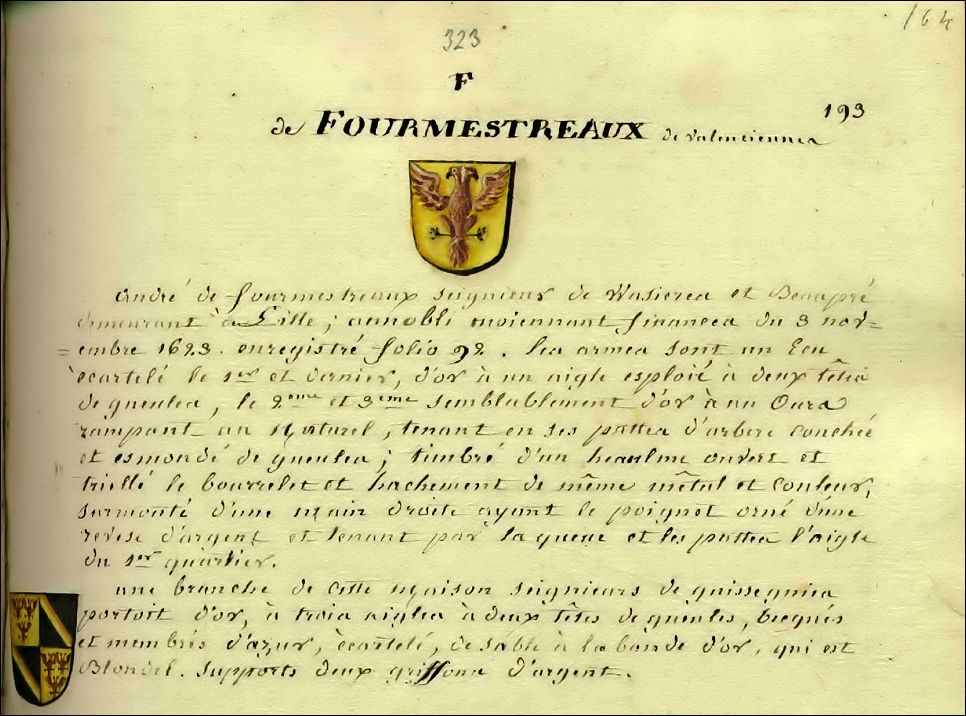 164
323
F
193
de FOURMESTREAUX de valenciennes
André de fourmestreaux seignieur de Wasieres et Beaupré
demeurant à Lille; annobli moiennant finances du 3 nov=
=embre 1623. enregistré folio 92. les armes sont un Ecu
écartelé le 1er et dernier, d'or à un aigle esploié à deux têtes
de gueules, le 2eme et 3eme semblablement d'or à un Ours
rampant au Naturel, tenant en ses pattes d'arbre couchée
et esmondé de gueules; timbré d'un heaulme ouvert et
trillé le bourrelet et hachement de même métal et couleur,
surmonté d'une main droite ayant le poignet orné d'une
et tenant par la queue et les pattes l'aigle
du 1er quartier.
une branche de cette maison seignieurs de
portoit d'or, à trois aigles à deux têtes de gueules, becqués
et membrés d'azur, écartelé, de sable à la bande d'or, qui est
Blondel. supports deux griffons d'argent.